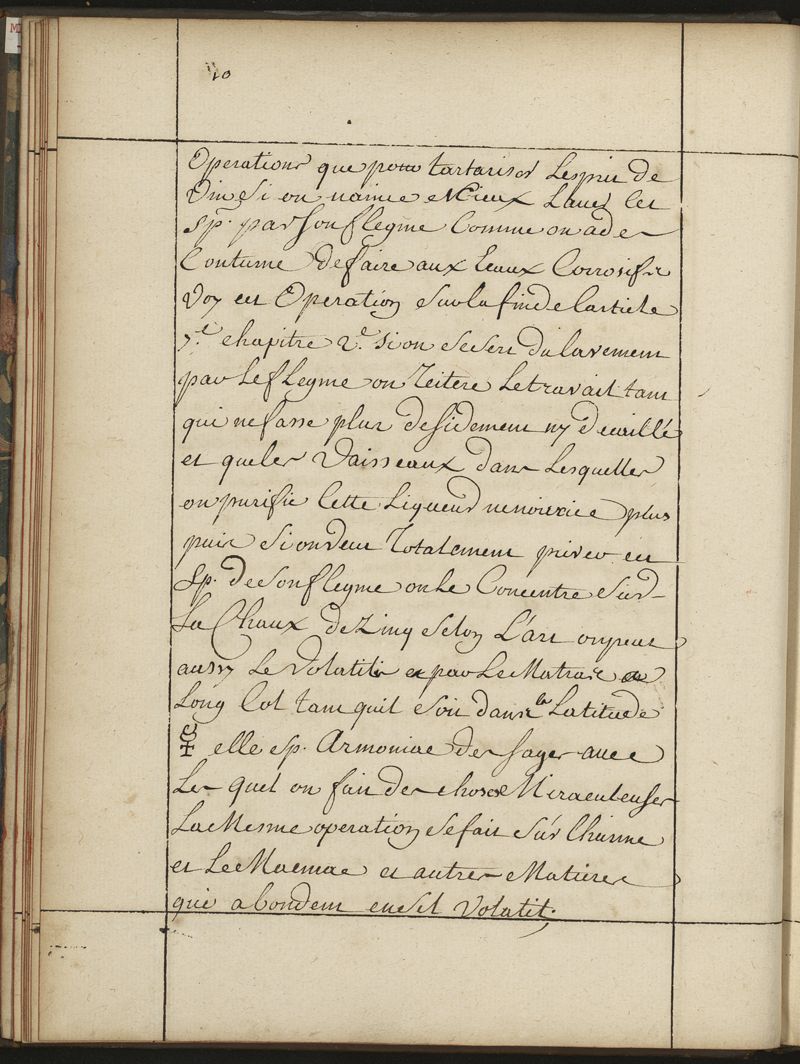 10
Operations que pour tartariser Lesprit de
Vin Si on naime Mieux Laver let
Sp. par Son flegme Comme on a de
Coutume de faire aux Eaux Corrosifs
Voy cet Operation Sur la fin de larticle
7.e chapitre 2.e Si on Se Sert du lavement
par Le flegme on Reitere Le travail tant
qui ne fasse plus de Sidement ny d'ecaille
et que les Vaisseaux dans Lesquelles
on purifie Cette Liqueur plus
puis Si on Veut Totalement priver cet
Sp. de Son flegme on Le Concentre Sur
La Chaux de Zinq Selon L'art on peut
aussy Le Volatilis par Le Matras
Long Col tant quil Soit dans la Latitude
elle Sp. Armoniac des Sages avec
Le quel on fait des choses Miraculeuses
La Mesme operation Se fait Sur Lhurine
et Le et autres Matieres
qui abondent en Sel Volatil.